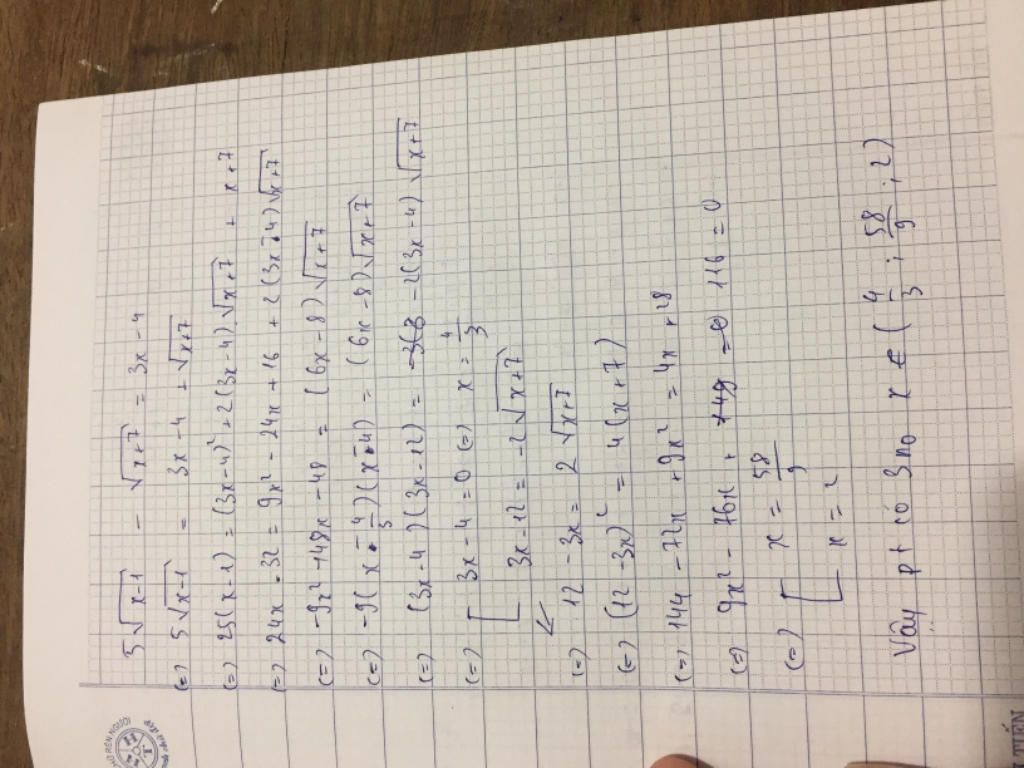 5√(x-1) - √(x+7) = 3x - 4
(=) 5√(x-1) = 3x - 4 + √(x+7)
(=) 25(x-1) = (3x-4)² + 2(3x-4)√(x+7) + x+7
(=) 24x - 32 = 9x² - 24x + 16 + 2(3x-4)√(x+7)
(=) -9x² + 48x - 48 = (6x-8)√(x+7)
(=) -9(x - 4/3)(x-4) = (6x-8)√(x+7)
(=) (3x-4)(3x-12) = -2(3x-4)√(x+7)
(=) [ 3x-4 = 0 (=) x = 4/3
3x-12 = -2√(x+7)
(=) 12 - 3x = 2√(x+7)
(=) (12-3x)² = 4(x+7)
(=) 144 - 72x + 9x² = 4x + 28
(=) 9x² - 76x + 116 = 0
(=) [ x = 58/9
x = 2
Vậy pt có 3 no x ∈ (4/3 ; 58/9 ; 2)
RÈN NGƯỜI
TIẾN